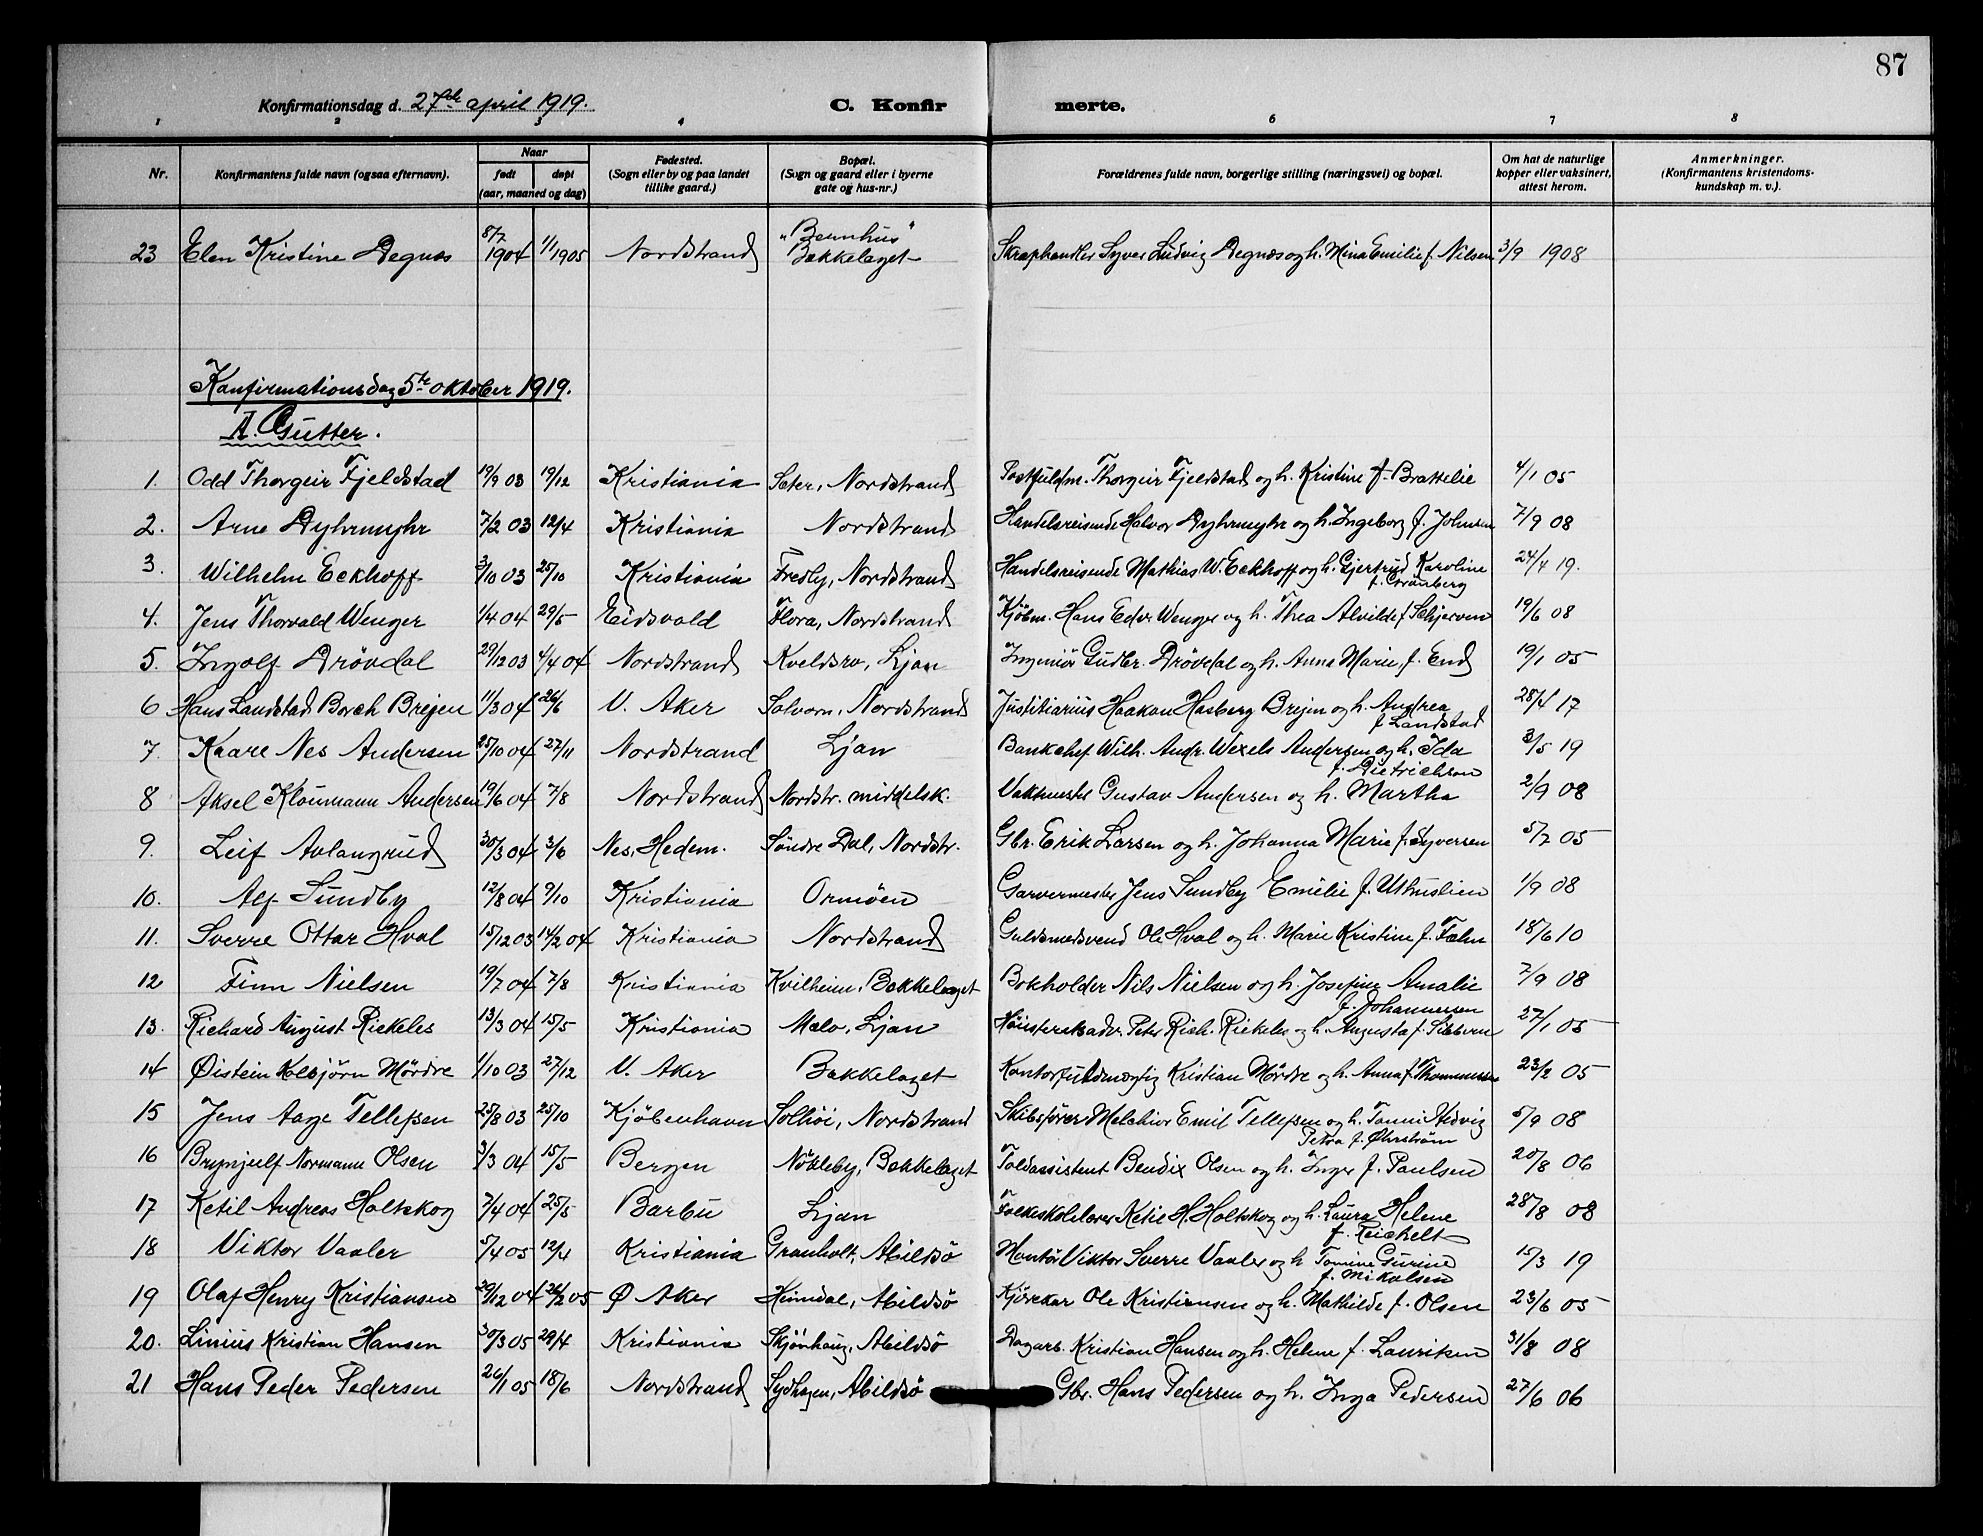 87
Konfirmationsdag d. 27de april 1919. C. Konfirmerte.
1 2 3 4 6 7 8
Nr. Konfirmantens fulde navn (ogsaa efternavn). Naar født døpt (aar, maaned og dag) Fødested. (Sogn eller by og paa landet tillike gaard.) Bopæl. (Sogn og gaard eller i byerne gate og hus-nr.) Forældrenes fulde navn, borgerlige stilling (næringsvei) og bopæl. Om hat de naturlige kopper eller vaksinert, attest herom. Anmerkninger. (Konfirmantens kristendoms-kundskap m. v.).
23 Elen Kristine Degnæs 8/7 1904 1/1 1905 Nordstrand Bækkelaget Skraphandler Syver Ludvig Degnæs og h. Mina Emilie f. Nilsen 3/9 1908
Konfirmationsdag 5te oktober 1919.
A. Gutter.
1. Odd Thorgeir Fjeldstad 19/9 03 19/12 Kristiania Sæter, Nordstrand Postfuldm. Thorgeir Fjeldstad og h. Kristine f. Brattelie 4/1 05
2. Arne Dyhrmyhr 7/2 03 12/4 Kristiania Nordstrand Handelsreisende Halvor Dyhrmyhr og h. Ingeborg f. Johnsen 7/9 08
3. Wilhelm Eckhoff 3/10 03 25/10 Kristiania Fredly, Nordstrand Handelsreisende Mathias W. Eckhoff og h. Gjertrud Karoline f. Grønberg 24/4 19.
4. Jens Thorvald Wenger 1/4 04 29/5 Eidsvold Flora, Nordstrand Kjøbm. Hans Edv. Wenger og h. Thea Alvilde f. Schjerven 19/6 08
5. Ingolf Drövdal 29/12 03 4/4 04 Nordstrand Kveldsro, Ljan Ingeniör Gudbr. Drövdal og h. Anne Marie f. End 19/1 05
6 Hans Landstad Borch Brejen 11/3 04 26/6 V. Aker Solvorn, Nordstrand Justitiarius Haakon Hasberg Brejen og h. Andrea f. Landstad 28/4 17
7. Kaare Nes Andersen 25/10 04 27/11 Nordstrand Ljan Bankchef Wilh. Andr. Wexels Andersen og h. Ida f. Dietrichson 3/5 19
8 Aksel Kloumann Andersen 19/6 04 7/8 Nordstrand Nordstr. middelsk. Vaktmester Gustav Andersen og h. Martha 2/9 08
9. Leif Avlangrud 30/3 04 3/6 Nes, Hedem. Söndre Dal, Nordstr. Gbr. Erik Larsen og h. Johanna Marie f. Syversen 5/7 05
10. Alf Sundby 12/8 04 9/10 Kristiania Ormöen Garvermester Jens Sundby Emilie f. 1/9 08
11. Sverre Ottar Hval 15/12 03 14/2 04 Kristiania Nordstrand Guldsmedsvend Ole Hval og h. Marie Kristine f. Fæhn 18/6 10
12 Finn Nielsen 19/7 04 7/8 Kristiania Kvilheim, Bækkelaget Bokholder Nils Nielsen og h. Josefine Amalie f. Johannesen 7/9 08
13. Richard August Rickeles 13/3 04 15/5 Kristiania Mælo, Ljan Höiesteretsadv. Peter Rich. Rickeles og h. Augusta f. Sibbern 27/1 05
14 Øistein Kolbjörn Mördre 1/10 03 27/12 V. Aker Bækkelaget Kontorfuldmægtig Kristian Mördre og h. Anna f. Thommessen 23/2 05
15 Jens Aage Tellefsen 25/8 03 25/10 Kjöbenhavn Solhöi, Nordstrand Skibsförer Melchior Emil Tellefsen og h. Fanni Hedvig Petra f. Øhrström 5/9 08
16 Brynjulf Normann Olsen 3/3 04 15/5 Bergen Nökleby, Bækkelaget Toldassistent Bendix Olsen og h. Inger f. Paulsen 20/8 06
17 Ketil Andreas Holtskog 7/4 04 25/5 Barbu Ljan Folkeskolelærer Ketil H. Holtskog og h. Laura Helene f. Reichelt 28/8 08
18 Viktor Vaaler 5/4 05 12/4 Kristiania Granholt, Abildsö Montör Viktor Sverre Vaaler og h Tomine Gurine f. Mikalsen 15/3 19
19 Olaf Henry Kristiansen 29/12 04 26/2 05 Ø Aker Heimdal, Abildsö Kjörekar Ole Kristiansen og h. Mathilde f. Olsen 23/6 05
20. Linius Kristian Hansen 30/3 05 29/4 Kristiania Skjönhaug, Abildsö Dagarb. Kristian Hansen og h. Helene f. Lauriksen 31/8 08
21 Hans Peder Pedersen 26/1 05 18/6 Nordstrand Sydhagen, Abildsö Gbr. Hans Pedersen og h. Inga Pedersen 27/6 06